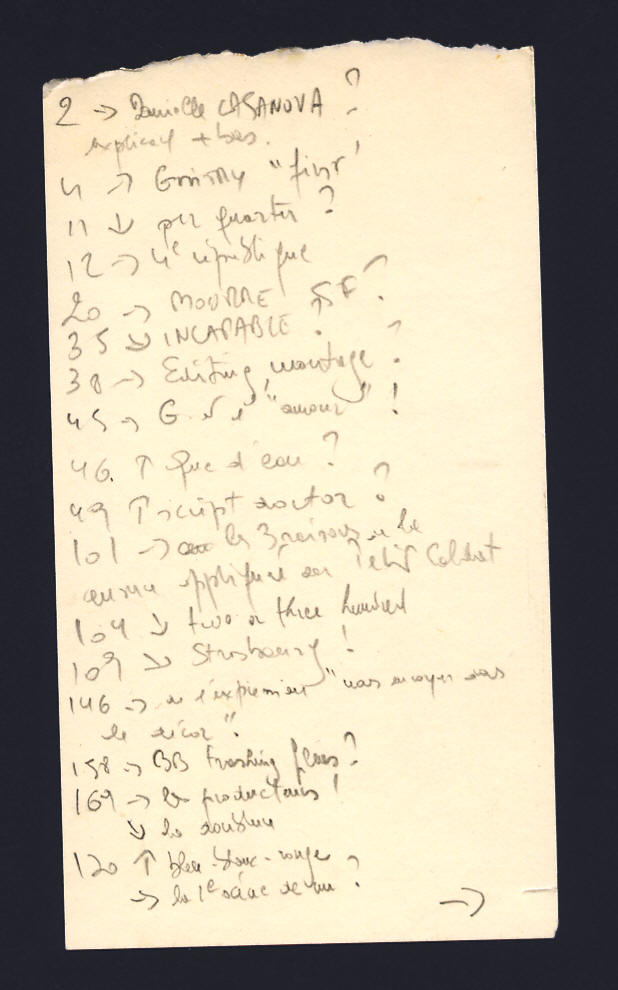 2 → Danielle CASANOVA ?
explicat + bas.
4 → Goiffy "first"
11 ↓ per quarter ?
12 → 4e république
20 → MOURRE SF ?
35 ↘ INCAPABLE ?
38 → Editing, montage ?
45 → G et l'"amour" !
46. ↑ que d'eau ?
49 ↑ script doctor ?
101 → les 3 raisons de la
censure appliquée au Petit Soldat
104 ↘ two or three hundred
109 ↘ Strasbourg !
146 → de l'expression "nous envoyer dans
le décor".
158 → BB trashing films ?
169 → les producteurs !
↘ la doublure
120 ↑ bleu-blanc-rouge
→ la 1e scène de nu ?
→